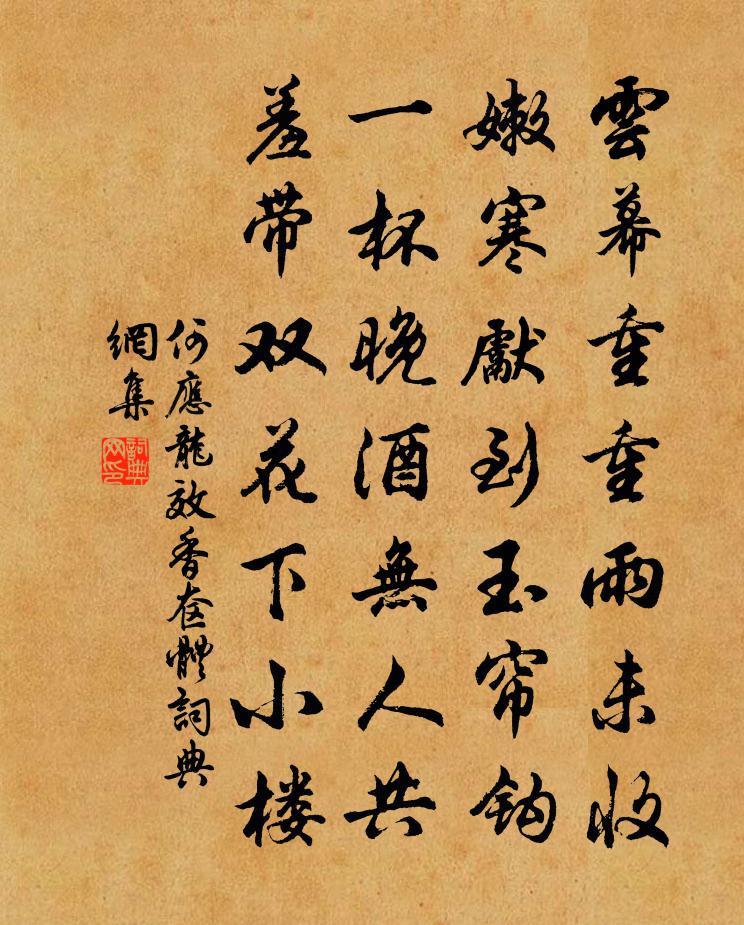 雲幕重重雨未收
嫩寒獻到玉帘钩
一杯晚酒無人共
羞带双花下小楼
何應龍效香奁體詞典
網集
詞典
网印